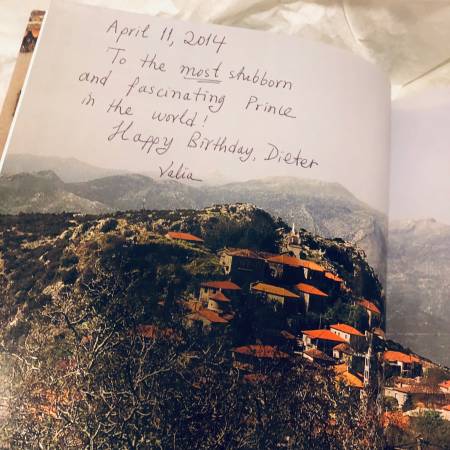 April 11, 2014
To the most stubborn
and fascinating Prince
in the world!
Happy Birthday, Dieter
Valia